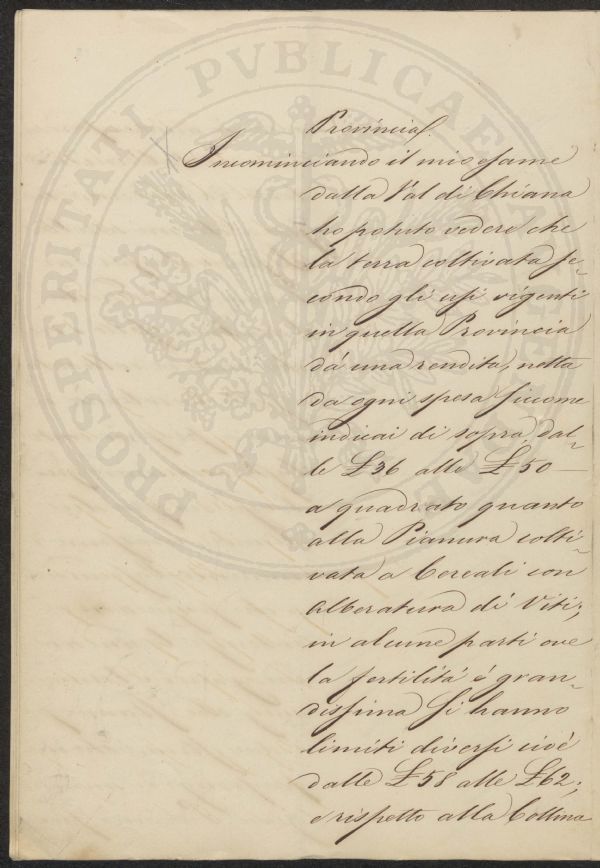 Provincial.
Incominciando il mio esame
dalla Val di Chiana
ho potuto vedere che
la terra coltivata se-
condo gli usi vigenti
in quella Provincia
dá una rendita, netta
da ogni spesa siccome
indicai di sopra, dal-
le £36 alle £50 —
a quadrato quanto
alla Pianura colti-
vata a Cereali con
Alberatura di Viti;
in alcune parti ove
la fertilitá é gran-
dissima si hanno
limiti diversi cioé
dalle £58 alle £62;
e rispetto alla Collina
PROSPERITATI PVBLICAE